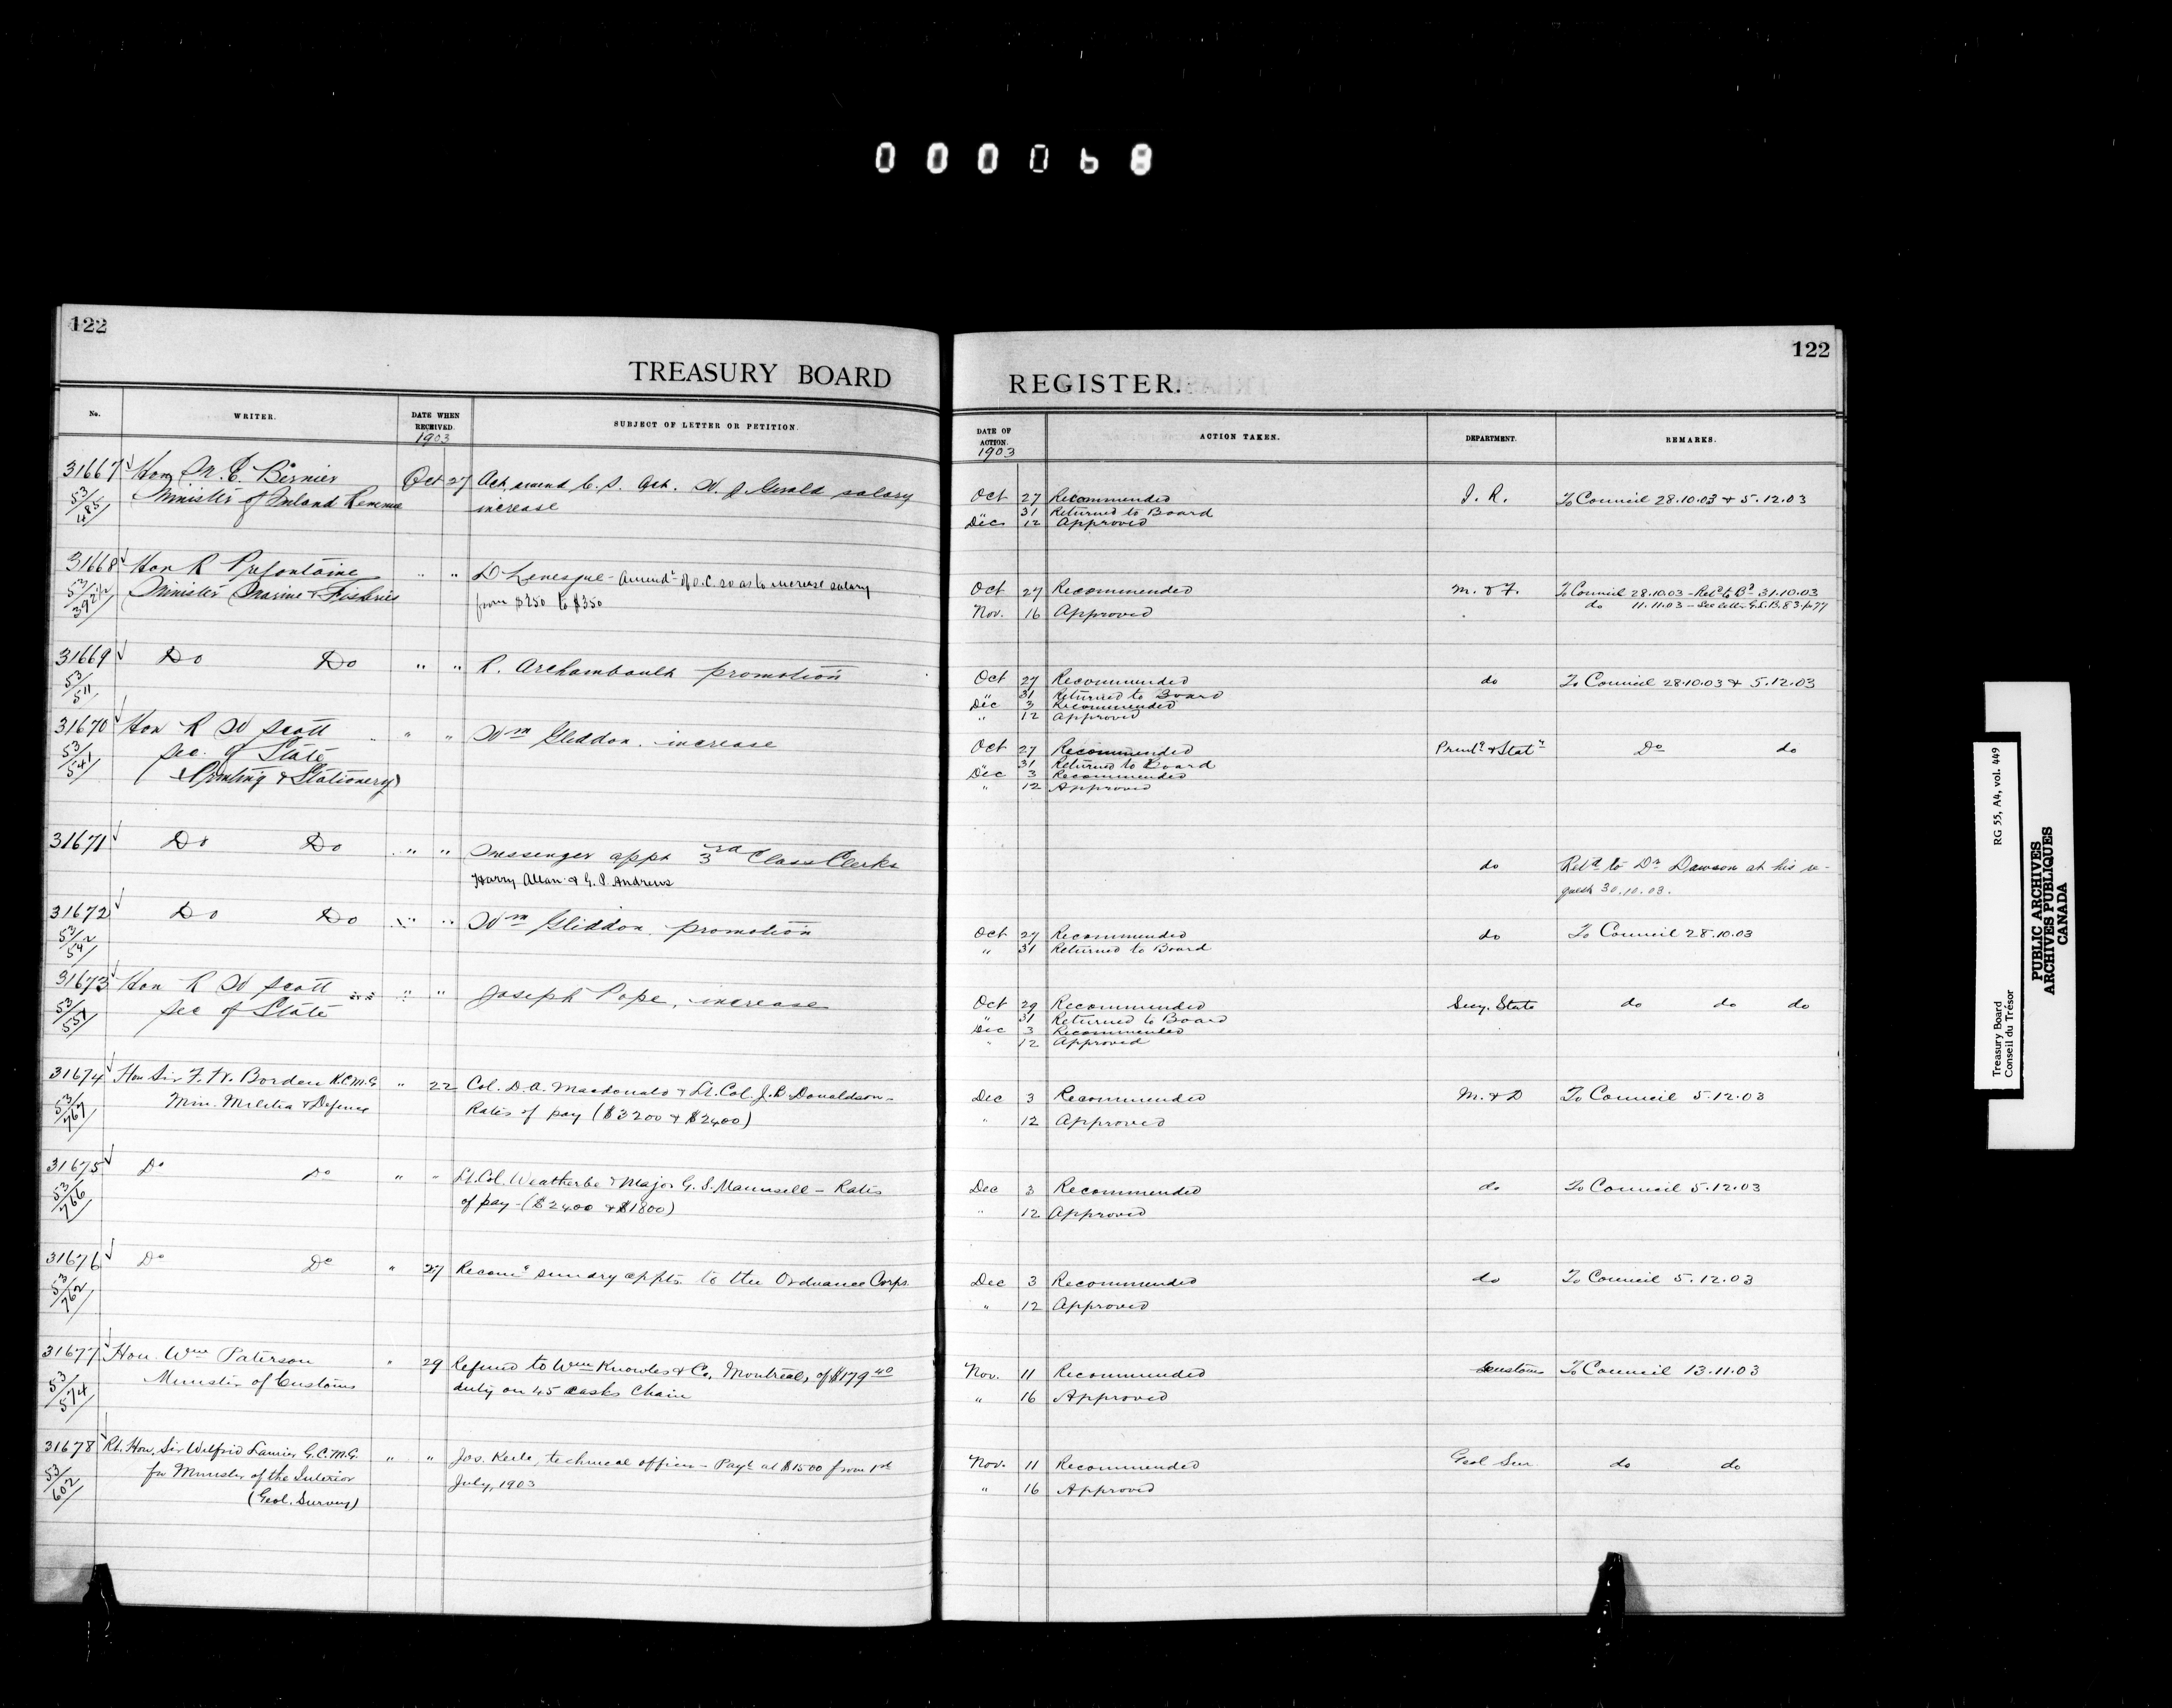 000068
122
TREASURY BOARD
No.
WRITER.
DATE WHEN RECEIVED.
1903
SUBJECT OF LETTER OR PETITION.
31667 Hon M. E. Bernier Oct 27 Act amend C. S. Act. W. J. Gerald salary
53/485 Minister of Inland Revenue increase
31668 Hon R Prefontaine " " D Levesque - Amendt of O.C. so as to increase salary
53/392½ Minister Marine & Fisheries from $250 to $350
31669 Do Do " " R. Archambault promotion
53/511
31670 Hon R W Scott " " Wm Gliddon. increase
53/541 Sec. of State
(Printing & Stationery)
31671 Do Do " " Messenger appt 3rd Class Clerks
Harry Allan & G. P. Andrews
31672 Do Do " " Wm Gliddon. promotion
53/
31673 Hon R W Scott " " Joseph Pope, increase
53/551 Sec of State
31674 Hon Sir F. W. Borden K.C.M.G. " 22 Col. D. A. Macdonald & Lt. Col. J. B. Donaldson -
53/767 Min. Militia & Defence Rates of pay ($3200 & $2400)
31675 Do Do " " Lt. Col. Weatherbe & Major G. S. Maunsell - Rates
53/766 of pay - ($2400 & $1800)
31676 Do Do " 27 Recomg sundry appts. to the Ordnance Corps.
53/762
31677 Hon. Wm Paterson " 29 Refund to Wm Knowles & Co, Montreal, of $179 40
53/574 Minister of Customs duty on 45 casks Chain
31678 Rt. Hon. Sir Wilfrid Laurier G.C.M.G. " " Jos. Keele, technical officer - Payt at $1500 from 1st
53/602 for Minister of the Interior July, 1903
(Geol. Survey)
122
REGISTER.
DATE OF ACTION.
1903
ACTION TAKEN.
DEPARTMENT.
REMARKS.
Oct 27 Recommended I. R. To Council 28.10.03 & 5.12.03
31 Returned to Board
Dec 12 Approved
Oct 27 Recommended M. & F. To Council 28.10.03 - Retd to Bd 31.10.03
do 11.11.03 - See letter G.L.B. 83.p.77
Nov. 16 Approved
Oct 27 Recommended do To Council 28.10.03 & 5.12.03
" 31 Returned to Board
Dec 3 Recommended
" 12 Approved
Oct 27 Recommended Print. & Staty Do do
31 Returned to Board
Dec 3 Recommended
" 12 Approved
do Retd to Dr Dawson at his re-
quest 30.10.03.
Oct 27 Recommended do To Council 28.10.03
" 31 Returned to Board
Oct 29 Recommended Secy. State do do do
" 31 Returned to Board
Dec 3 Recommended
" 12 Approved
Dec 3 Recommended M. & D To Council 5.12.03
" 12 Approved
Dec 3 Recommended do To Council 5.12.03
" 12 Approved
Dec 3 Recommended do To Council 5.12.03
" 12 Approved
Nov. 11 Recommended Customs To Council 13.11.03
" 16 Approved
Nov. 11 Recommended Geol. Sur. do do
" 16 Approved
Treasury Board RG 55, A4, vol. 449
Conseil du Trésor
PUBLIC ARCHIVES
ARCHIVES PUBLIQUES
CANADA